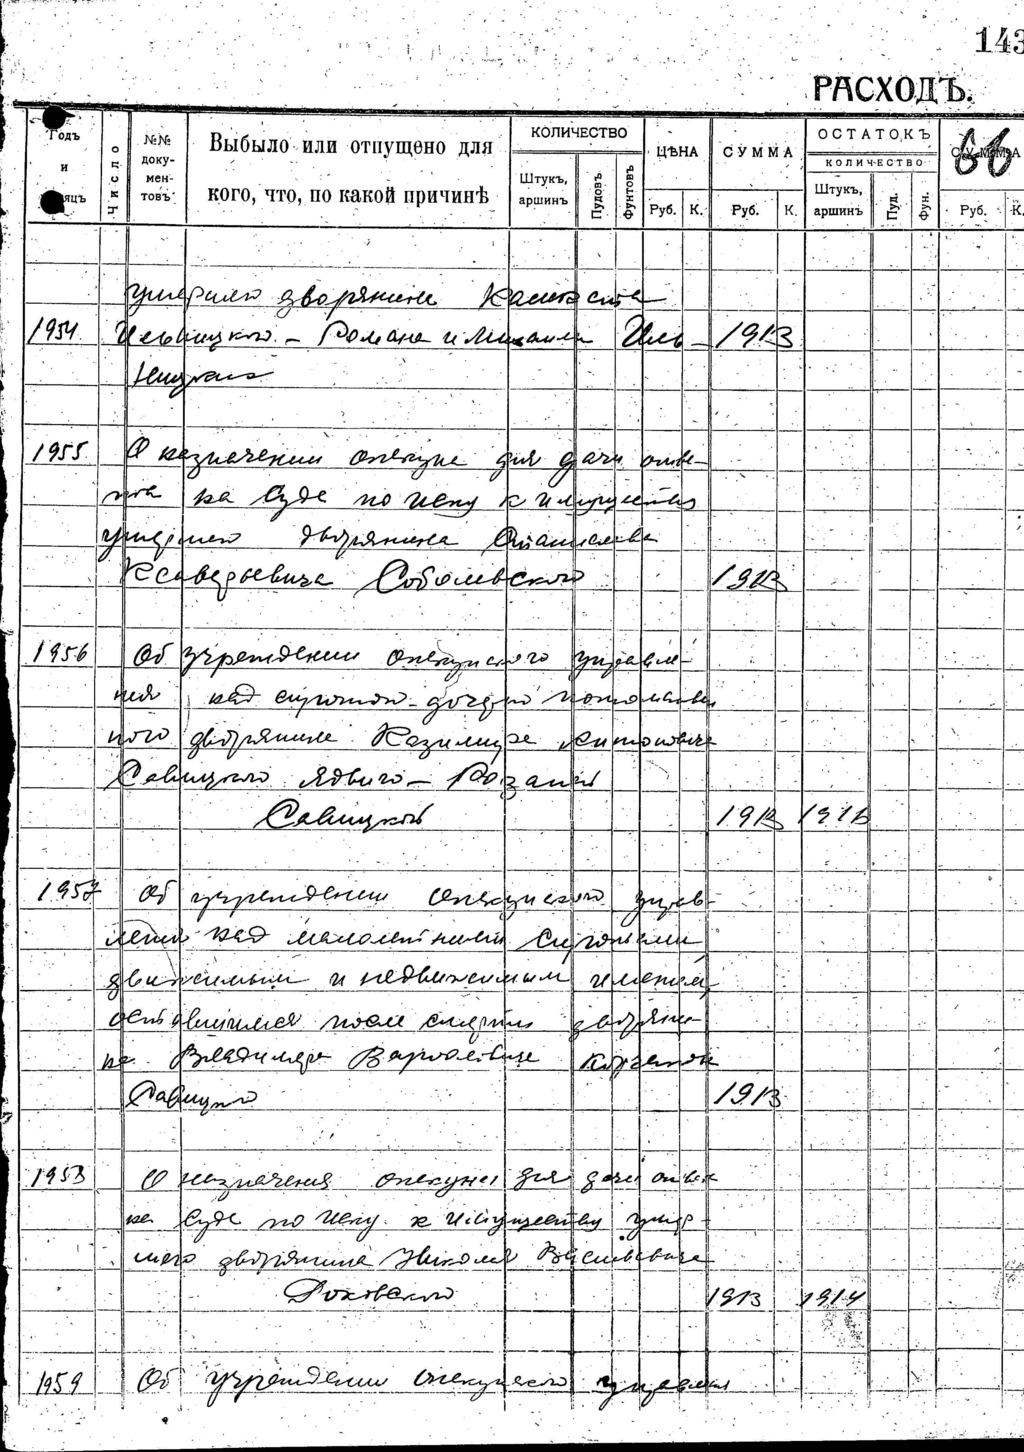 143
РАСХОДЪ.
Годъ и мѣсяцъ
Число
№№ доку-мен-товъ
Выбыло или отпущено для
кого, что, по какой причинѣ
КОЛИЧЕСТВО
Штукъ, аршинъ
Пудовъ
Фунтовъ
ЦѢНА
Руб. К.
СУММА
Руб. К.
ОСТАТОКЪ
КОЛИЧЕСТВО
Штукъ, аршинъ
Пуд.
Фун.
СУММА
Руб. К.
66
умершего дворянина
1954 Ильницкого – Романа и Михаила Иль– 1913
ницких
1955 О назначении опекуна для дачи отве–
та на Суде по иску к имуществу
умершего дворянина Станислава
Ксаверьевича Соболевского 1913
1956 Об учреждении опекунского управле–
ния над сиротою – дочерью потомствен
ного дворянина Казимира Антоновича
Савицкого Ядвигою – Розалией
Савицкой 1913
1957 Об учреждении опекунского управ–
лении над малолетними сиротами
движимым и недвижимым имением,
оставшимся после смерти дворяни–
на Владимира
Савицкого 1913
1958 О назначения опекуна для дачи ответа
на Суде по иску к имуществу умер–
шего дворянина Николая Васильевича
1913 1914
1959 Об учреждении опекунского управления